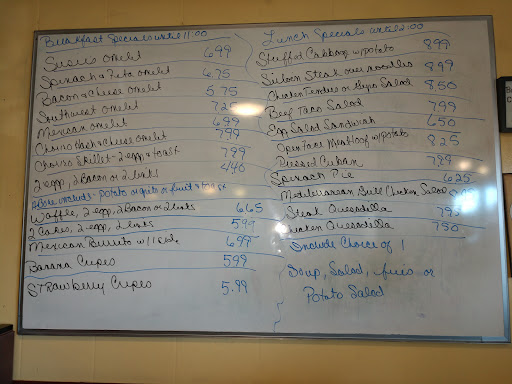 Breakfast Specials until 11:00
omelet 699
Spinach & Feta omelet 675
Bacon & cheese omelet 575
Southwest omelet 725
Mexican omelet 699
Chorizo cheese omelet 799
Chorizo Skillet - 2 egg + toast 799
2 egg, 2 Bacon or 2 links 446
Above includes - potato or grits or fruit & toast
Waffle, 2 egg, 2 Bacon or 2 links 665
2 Cakes, 2 egg, 2 links 599
Mexican Burrito w/ 1 side 699
Banana Crepes 599
Strawberry Crepes 5.99
Lunch Specials until 2:00
Stuffed Cabbage w/ potato 899
Sirloin Steak over noodles 899
Chicken Tenders or Gyro Salad 850
Beef Taco Salad 799
Egg Salad Sandwich 650
Open face Meatloaf w/ potato 825
Pressed Cuban 799
Spinach Pie 625
Mediterranean Grill Chicken Salad
Steak Quesadilla 795
Chicken Quesadilla 750
Include Choice of 1
Soup, Salad, fries or
Potato Salad